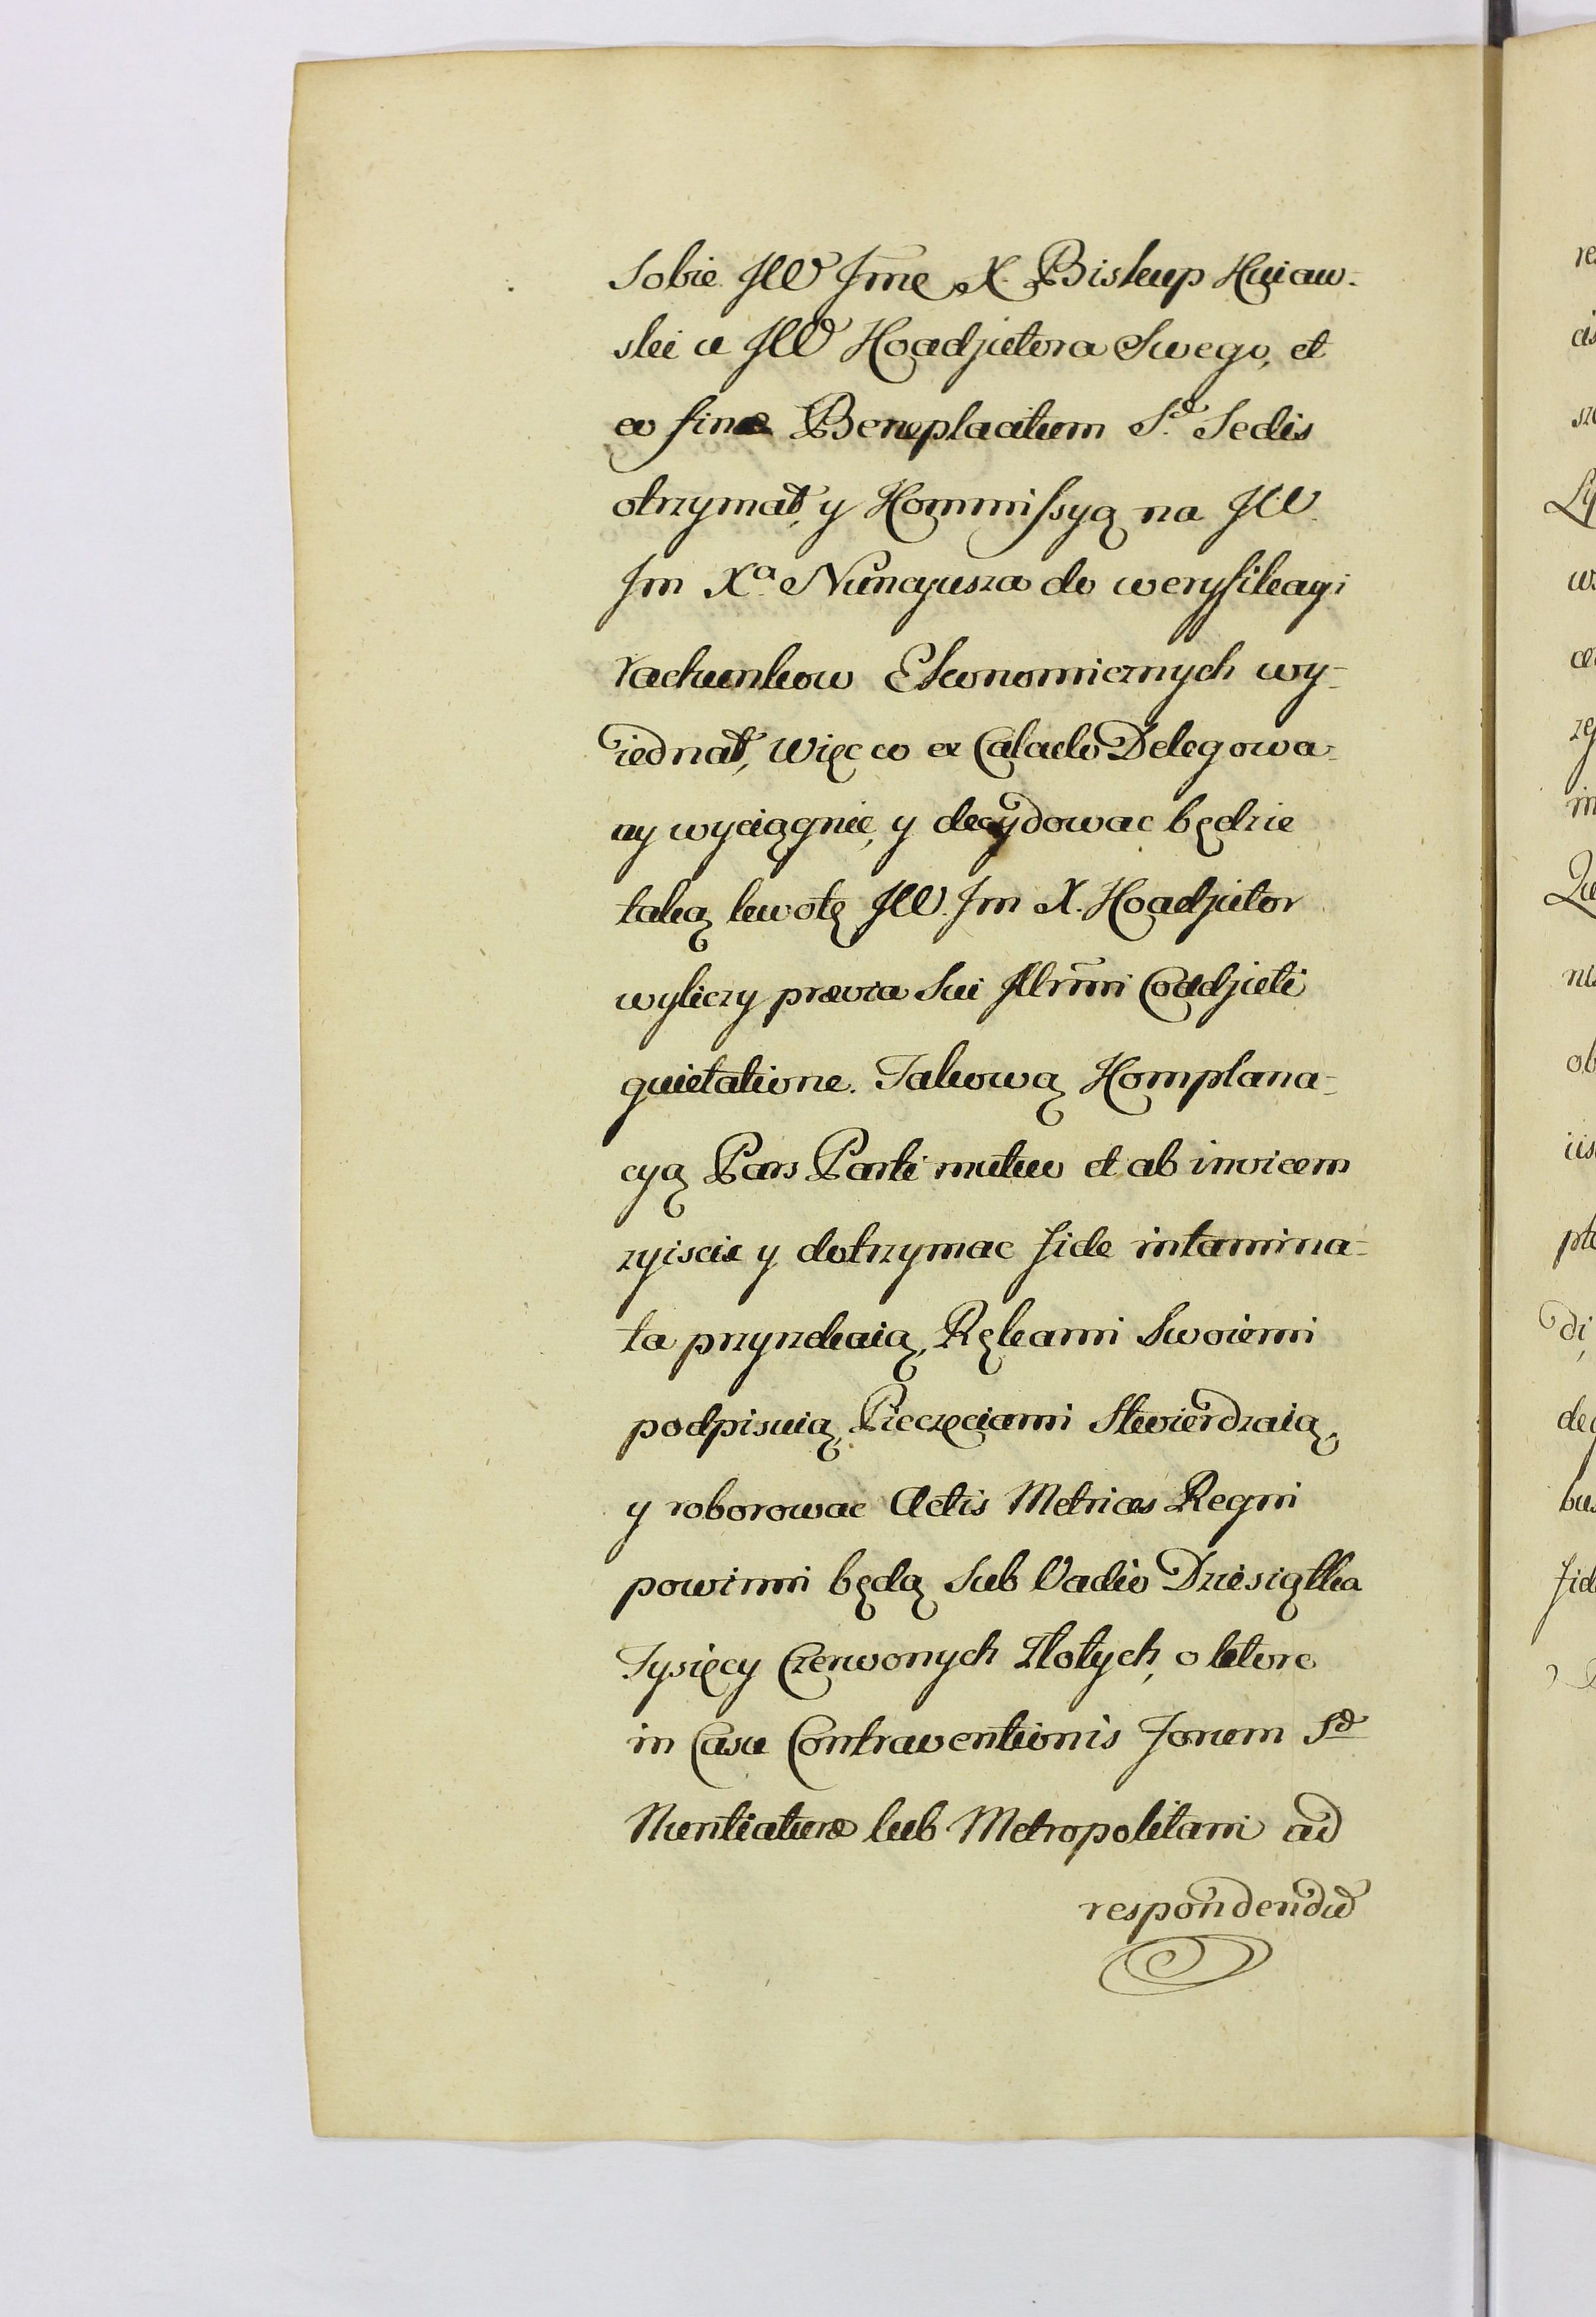 Sobie JW Jme X. Biskup Kuiaw-
ski u JW Koadjutora Swego, et
eo fine Beneplacitum S.æ Sedis
otrzymał, y Kommissyą na JW.
Jm Xa. Nuncyusza do weryfikacyi
rachunkow Ekonomicznych wy-
iednał, Więc co ex Calculo Delegowa-
ny wyciągnie, y decydowac będzie
taką kwotę JW. Jm X. Koadjutor
wyliczy prævia Sui Illrmi Coadjuti
quietatione. Takową Komplana-
cyą Pars Parti mutuo et ab invicem
zyiscic y dotrzymac fide intamina-
ta przyrzekaią, Rękami Swoiemi
podpisuią, Pieczęciami Stwierdzaią,
y roborowac Actis Metrices Regni
powinni będą Sub Vadio Dziesiątka
Tysięcy Czerwonych Złotych, o ktore
in Casu Contraventionis Forum Sæ
Nuntiaturæ lub Metropolitani ad
respondendũ